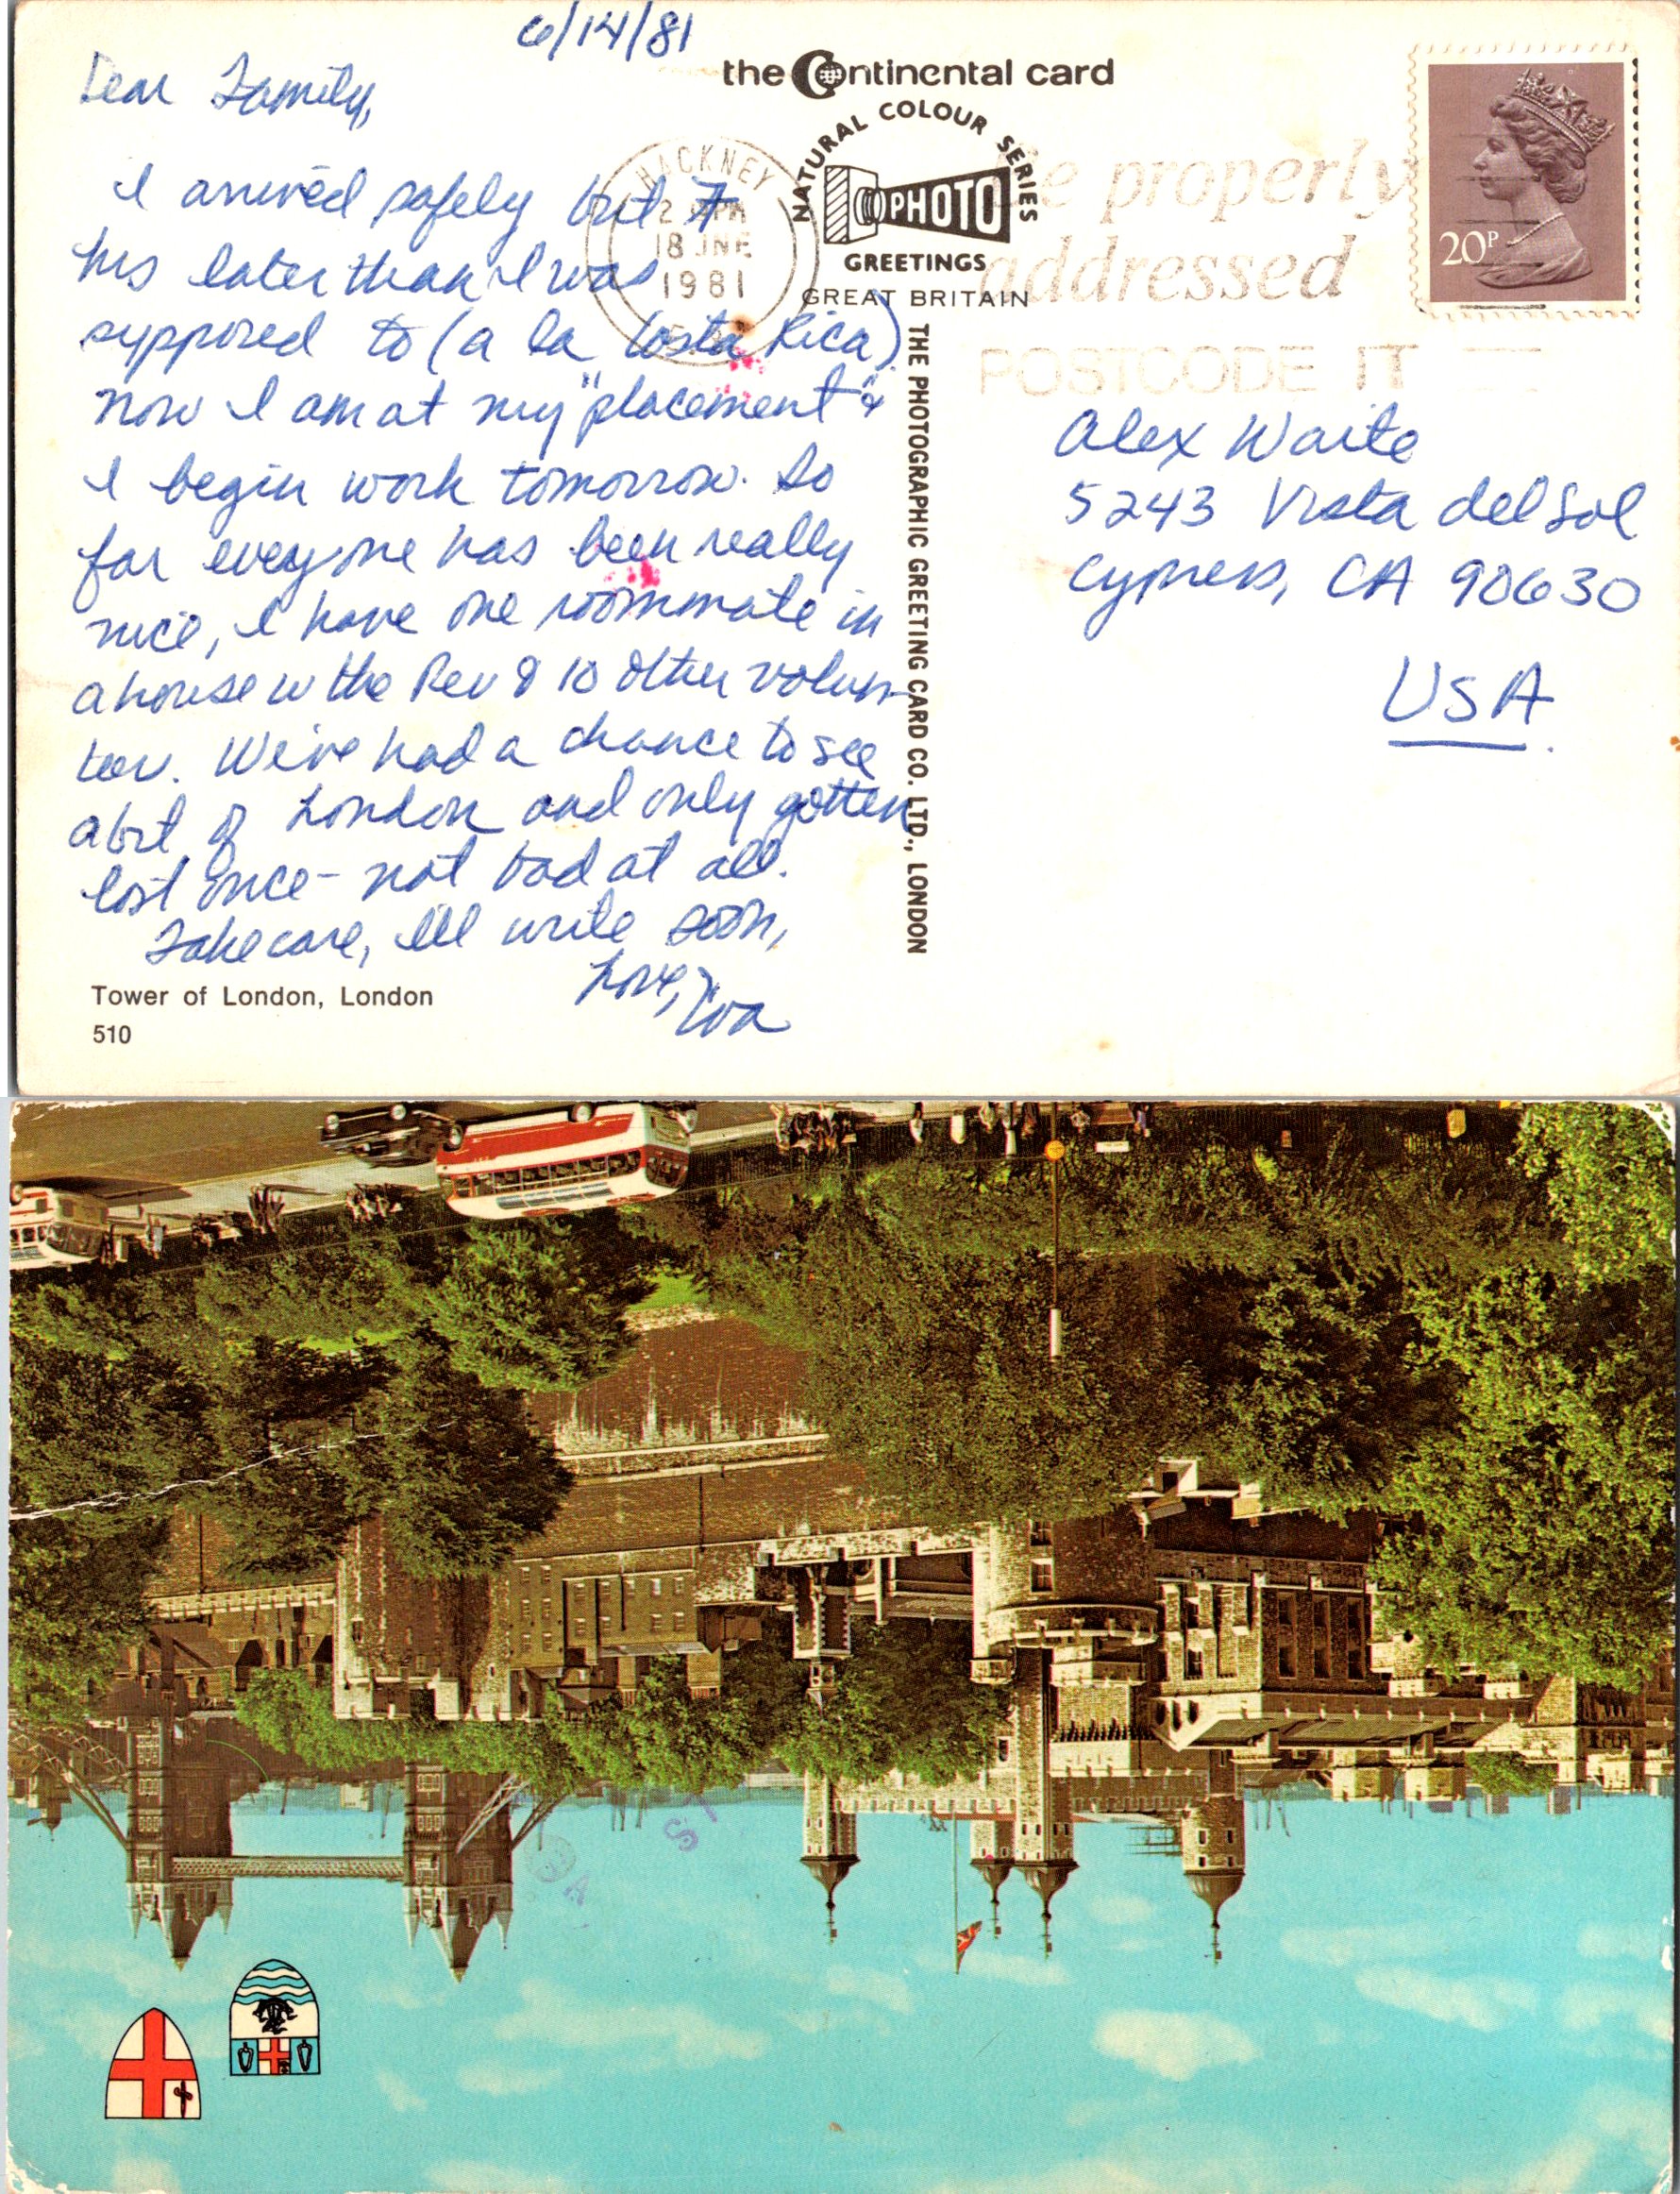 6/14/81
Dear Family,
I arrived safely but 7
hrs later than I was
supposed to (a la Costa Rica)
now I am at my "placement" &
I begin work tomorrow. So
far everyone has been really
nice, I have one roommate in
a house w the Rev & 10 other volun-
teer. We've had a chance to see
a bit of London and only gotten
lost once - not bad at all.
Take care, I'll write soon,
Love,
Tower of London, London
510
the Continental card
NATURAL COLOUR SERIES
PHOTO
GREETINGS
GREAT BRITAIN
THE PHOTOGRAPHIC GREETING CARD CO. LTD., LONDON
HACKNEY
18 JNE
1981
properly
addressed
POSTCODE IT
20P
Alex Waite
5243 Vista del Sol
Cypress, CA 90630
USA